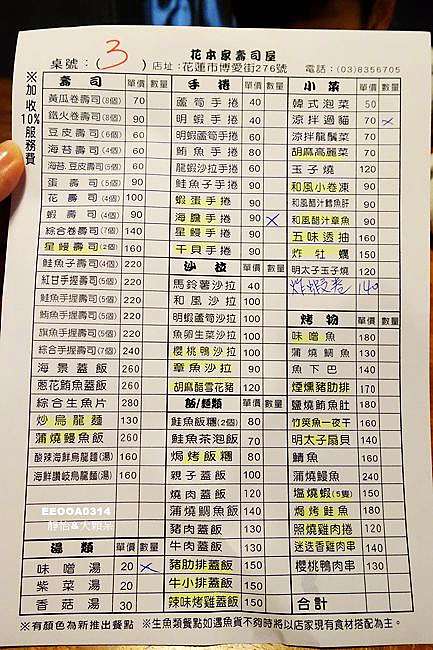 花本家壽司屋
桌號：(3) 店址：花蓮市博愛街276號 電話：(03)8356705
※加收10%服務費
壽司 單價 數量
黃瓜卷壽司(8個) 70
鐵火卷壽司(8個) 90
豆皮壽司(6個) 60
海苔壽司(4個) 60
海苔.豆皮壽司(5個) 60
蛋壽司(5個) 90
花壽司(4個) 100
蝦壽司(4個) 90
綜合卷壽司(7個) 140
星鰻壽司(2個) 160
鮭魚子壽司(4個) 220
紅甘手握壽司(5個) 220
鮭魚手握壽司(5個) 220
鮪魚手握壽司(5個) 220
旗魚手握壽司(5個) 220
綜合手握壽司(7個) 240
海景蓋飯 260
蔥花鮪魚蓋飯 260
綜合生魚片 280
炒烏龍麵 130
蒲燒鰻魚飯 260
酸辣海鮮烏龍麵(湯) 160
海鮮讚岐烏龍麵(湯) 150
EEOOA0314
湯類 單價 數量
味噌湯 20 ×
紫菜湯 20
香菇湯 30
手捲 單價 數量
蘆筍手捲 40
明蝦手捲 40
明蝦蘆筍手捲 60
鮪魚手捲 80
龍蝦沙拉手捲 60
鮭魚子手捲 90
蝦蛋手捲 90
海膽手捲 90 ×
星鰻手捲 90
干貝手捲 90
沙拉 單價 數量
馬鈴薯沙拉 40
和風沙拉 100
明蝦蘆筍沙拉 100
魚卵生菜沙拉 100
櫻桃鴨沙拉 100
章魚沙拉 90
胡麻醋雪花豬 120
飯/麵類 單價 數量
鮭魚飯糰(2個) 80
鮭魚茶泡飯 70
焗烤飯糰 80
親子蓋飯 100
燒肉蓋飯 120
蒲燒鯛魚飯 130
豬肉蓋飯 130
牛肉蓋飯 130
豬肋排蓋飯 150
牛小排蓋飯 150
辣味烤雞蓋飯 150
小菜 單價 數量
韓式泡菜 50
涼拌過貓 70 ×
涼拌龍鬚菜 70
胡麻高麗菜 70
玉子燒 120
和風小卷凍 90
和風醋汁鱈魚肝 90
和風醋汁章魚 90
五味透抽 160
炸牡蠣 150
明太子玉子燒 120
炸蝦卷 140
烤物 單價 數量
味噌魚 180
蒲燒鯛魚 130
魚下巴 140
煙燻豬肋排 170
鹽燒鮪魚肚 180
竹筴魚一夜干 160
明太子扇貝 140
鯖魚 160
蒲燒鰻魚 240
塩燒蝦(5隻) 150
焗烤鮭魚 180
照燒雞肉捲 120
迷迭香雞肉串 140
櫻桃鴨肉串 130
合計
※有顏色為新推出餐點 ※生魚類餐點如遇魚貨不夠時將以店家現有食材搭配為主。